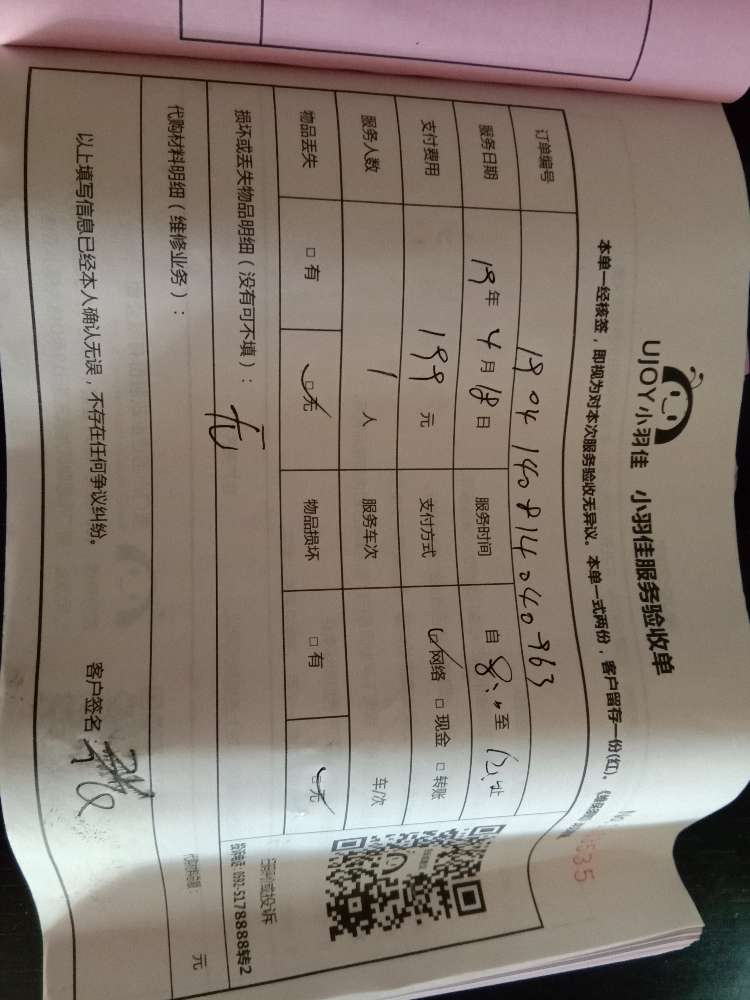 UJOY小羽佳 小羽佳服务验收单
本单一经核签，即视为对本次服务验收无异议。本单一式两份，客户留存一份(红)。
535
订单编号
服务日期 19年4月18日 服务时间 自 至
支付费用 199元 支付方式 网络 □ 现金 □ 转账
服务人数 1人 服务车次 车/次
物品丢失 □ 有 □ 无 物品损坏 □ 有 □ 无
损坏或丢失物品明细（没有可不填）： 无
代购材料明细（维修业务）：
元
以上填写信息已经本人确认无误，不存在任何争议纠纷。 客户签名：